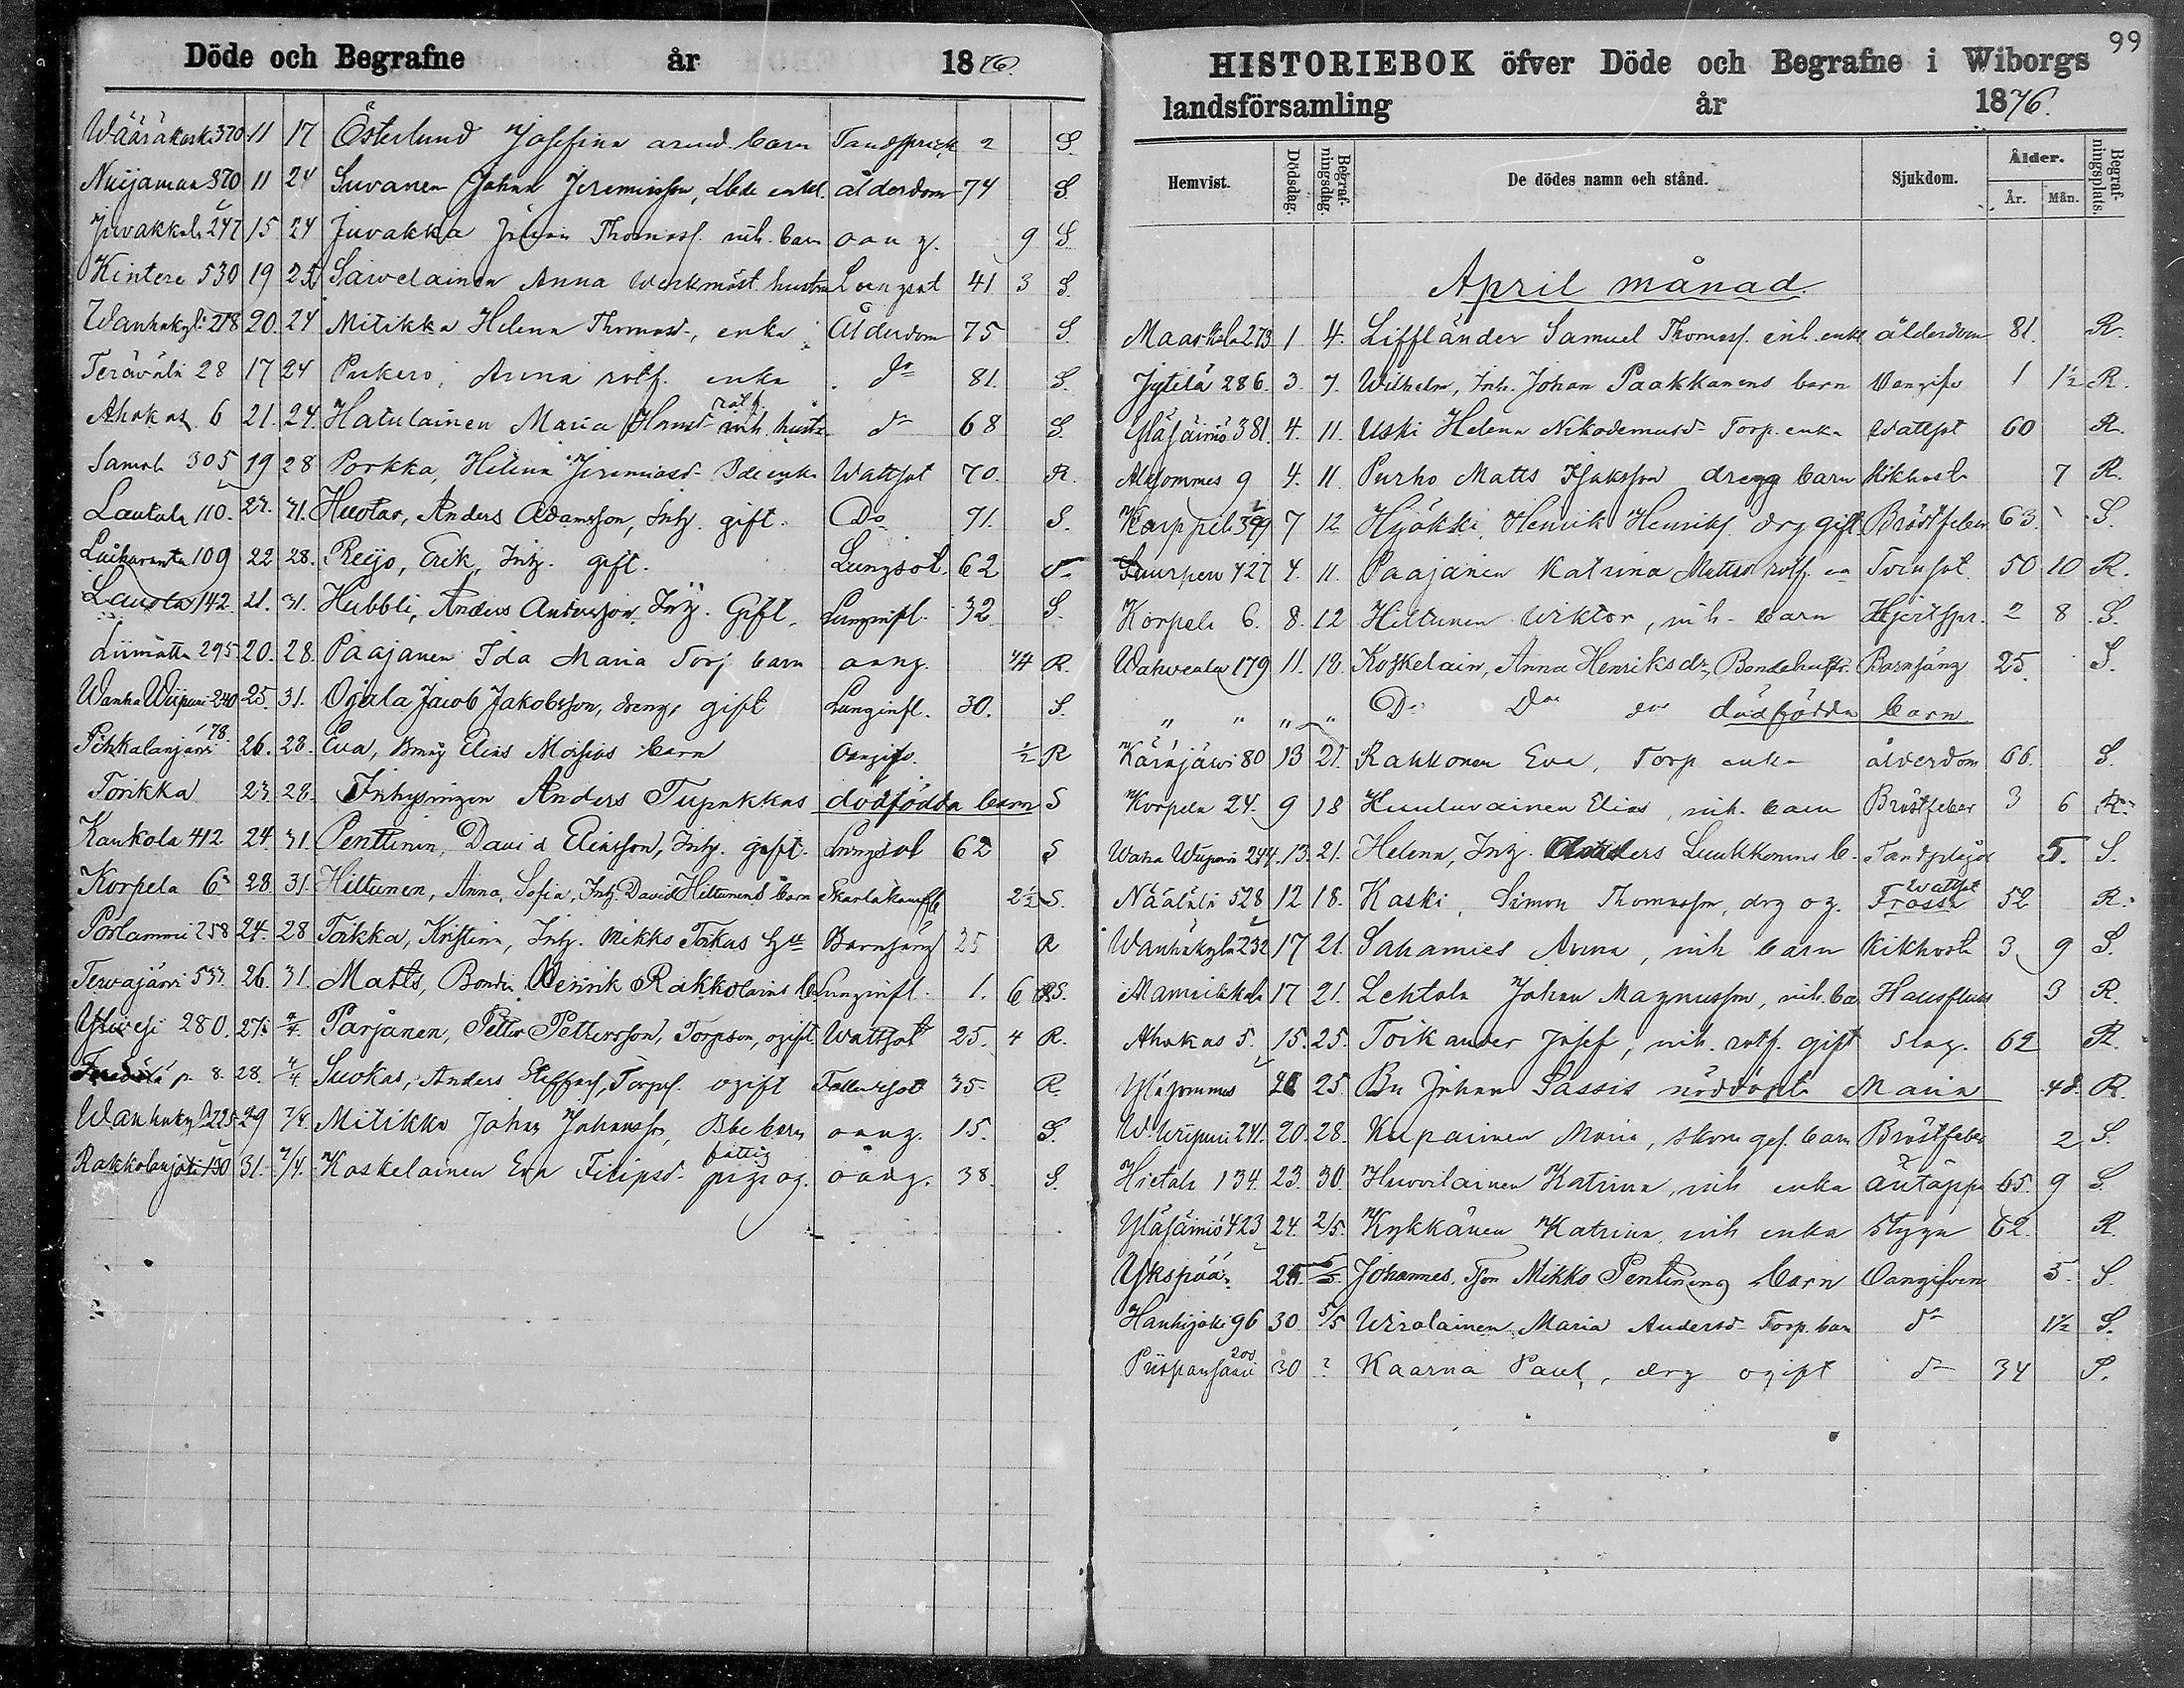 Döde och Begrafne år 1876.
Wääräkoski 370 11 17 Österlund Josefina arend. barn Tandsprick. 2 S.
Nuijamaa 370 11 24 Suvanen Johan Jeremiasson, enkl. ålderdom 74 S.
Juvakkala 247 15 24 Juvakka Johan Thomass. inh. barn oang. 9 S
Kintere 530 19 25 Saivelainen Anna Werkmäst. hustru Lungsot 41 3 S.
Wanhakyl. 278 20. 24 Mitikka Helena Thomasd., enka Ålderdom 75 S.
Terävälä 28 17 24 Pukero, Anna rotf. enka do 81. S.
Ahokas 6 21. 24. Hatulainen Maria rotf. inh. hustr. do 68 S.
Samola 305 19 28 Porkka, Helena Jeremiasd. enka Wattsot 70. R.
Lautala 110. 27. 31. Huotar, Anders Adamsson, Inh. gift. Do 71. S.
Laikaranta 109 22 28. Reijo, Erik, Inh. gift. Lungsot. 62 do
Lausta 142. 21. 31. Hubbli, Anders Andersson, Inh. Gift. Lunginfl. 32 S.
Liimatta 295 20. 28. Paajanen Ida Maria Torp barn oang. 1/4 R.
Wanha Wiipuri 240 25. 31. Ojala Jacob Jakobsson, dreng, gift Lunginfl. 30. S.
Pihkalanjärvi 78. 26. 28. Eva, Elias Moisios barn Oangifv. 1/2 R
Torikka 23. 28. Inhysingen Anders Tupakkas dödfödda barn S
Kaukola 412 24. 31. Penttinen, David Eliasson, Inh. gift. Lungsot 62 S
Korpela 6 28 31. Hiltunen, Anna, Sofia, Inh. David Hiltunens barn 2 1/2 S.
Porlammi 258 24. 28 Toikka, Kristina, Inh. Mikko Toikas Barnsäng 35 R
Tervajärvi 533. 26. 31. Matts, Bonden Henrik Rakkolains Lunginfl. 1. 6 S.
Ylivesi 280. 27. 2/4. Parjanen, Petter Pettersson, Torpson, ogift Wattsot 25. 4 R.
p. 8. 28. 2/4. Suokas, Anders Steffans. Torps. ogift Fallandesot 35 R.
Wanhakyl. 225 29 7/4. Mitikka Johan Johansson, Bde barn oang. 15. S.
Rakkolanjoki 150 31. 7/4. Koskelainen Eva Filipsd. fattig pig. og. oang. 38. S.
99
HISTORIEBOK öfver Döde och Begrafne i Wiborgs
landsförsamling år 1876.
Hemvist. Dödsdag. Begrafningsdag. De dödes namn och stånd. Sjukdom. Ålder. År. Mån. Begrafningsplats.
April månad
Maaskola 273 1 4. Liffländer Samuel Thomass. inh. enkl. ålderdom 81. R.
Jytilä 286. 3. 7. Wilhelm, Inh. Johan Paakkanens barn Oangifv 1 1 1/2 R.
Yläsäiniö 381. 4. 11. Uski Helena Nikodemusd. Torp. enka Wattsot 60 R.
Alasommes 9 4. 11. Purho Matts Isaksson dreng barn kikhosta 7 R.
Karppela 399 7 12. Hyökki, Henrik Henriks. drg gift Bröstfeber 63. S.
Suurpero 427 4. 11. Paajanen Katrina Mattsd. rotf. en Tvinsot 50 10 R.
Korpela 6. 8. 12 Hiltunen Wiktor, inh. barn Hjertspr. 2 8 S.
Wahviala 179 11. 18. Koskelain, Anna Henriksdr, Bondehustr. Barnsäng 25. S.
" " " " Do Do dödfödda barn
Kärnjärvi 80 13 21. Rakkonen Eva, Torp enka ålderdom 66. S.
Korpela 24. 9 18 Huuluvainen Elias, inh. barn Bröstfeber 3 6 R.
Waha Wiipuri 244. 13. 21. Helena, Inh. Anders Luukkonens b. Tandplågor 5. S.
Näätälä 528 12 18. Kaski, Simon Thomasson, drg og. Frossa Wattsot 52 R.
Wanhakylä 232 17 21. Sahamies Anna, inh barn Kikhosta 3 9 S.
Mannikkala 17 21. Lehtola Johan Magnusson, inh. ba Halsfluss 3 R.
Ahokas 5. 15. 25. Toikander Josef, inh. rotf. gift slag. 62 R.
Yläsommes 21 25 Bn Johan Sassis nöddöpte Maria 48. R.
W. Wiipuri 241. 20. 28. Kupainen Maria, skom. ges. barn Bröstfeber 2 S.
Hietala 134. 23. 30. Huovilainen Katrina, inh enka andtäppa 65. 9 S.
Yläsäiniö 423 24. 2/5. Kykkänen Katrina, inh enka Styng 62. R.
Ykspää. 26 5/5. Johannes, Tson Mikko Penttinens barn Oangifven 5. S.
Hanhijoki 96 30 5/5 Wirolainen Maria Andersd. Torp. barn do 1 1/2 S.
Piispansaari 200 30 ? Kaarna Paul, drg ogift do 34 S.